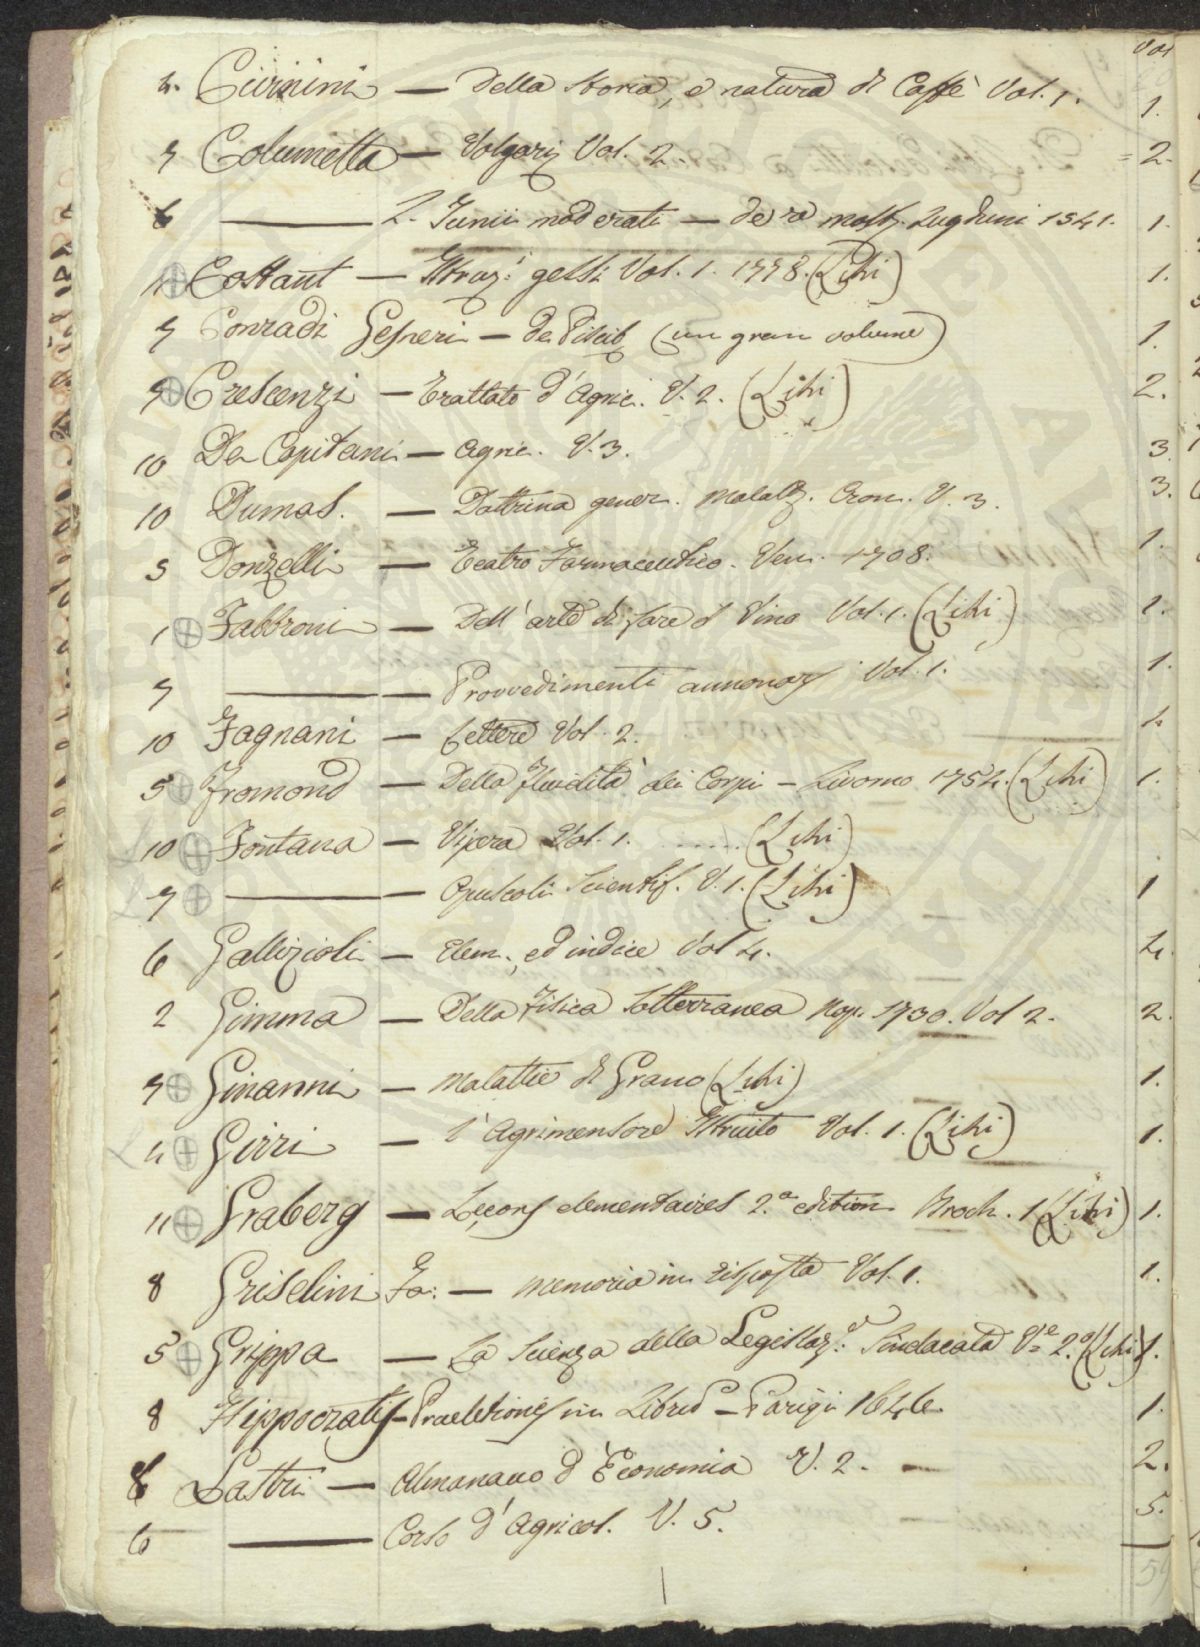 Vol
4. Civinini — Della Storia, e natura di Caffè Vol. 1. 1.
7 Columella — Volgariz Vol. 2. = 2.
6 ——— L. Junii moderati — de re Lugduni 1541. 1.
⊕ Costant — gessi Vol. 1. 1778. (Libri) 1.
7 Conradi Gesneri — De Piscib (un gran volume) 1.
7 ⊕ Crescenzi — Trattato d'Agric. V. 2. (Libri) 2.
10 De Capitani — Agric. V. 3. 3.
10 Dumas. — Dottrina gener. Malatt. Cron. V. 3. 3.
5 Donzelli — Teatro Farmaceutico. Ven. 1708. 1.
1 ⊕ Fabbroni — Dell'arte di fare il Vino Vol. 1. (Libri) 1.
7 ——— — Provvedimenti annonarj Vol. 1. 1.
10 Fagnani — Lettere Vol. 2.
5 ⊕ Fromond — Della Fluidità dei Corpi — Livorno 1754. (Libri) 1.
10 ⊕ Fontana — Vipera Vol. 1. ...... (Libri)
7 ⊕ ——— — Opuscoli Scientif. V. 1. (Libri) 1
6 Gallizioli — Elem., ed indice Vol 4. 4.
2 Gimma — Della Fisica Sotterranea Nap. 1730. Vol 2. 2.
7 ⊕ Ginanni — Malattie di Grano (Libri) 1.
4 ⊕ Girri — L'Agrimensore Istruito Vol. 1. (Libri) 1.
11 ⊕ Graberg — Leçons elementaires 2.a edition Broch. 1 (Libri) 1.
8 Griselini Fr: — Memoria in risposta Vol. 1. 1.
5 ⊕ Grippa — La Scienza della Legislaz.e Sindacata Ve 2.o (Libri) 1.
8 Hippocratis — Praelectiones in Libr — Parigi 1646. 1.
8 Lastri — Almanacco d'Economia V. 2. — 2.
6 ——— Corso d'Agricol. V. 5. 5.